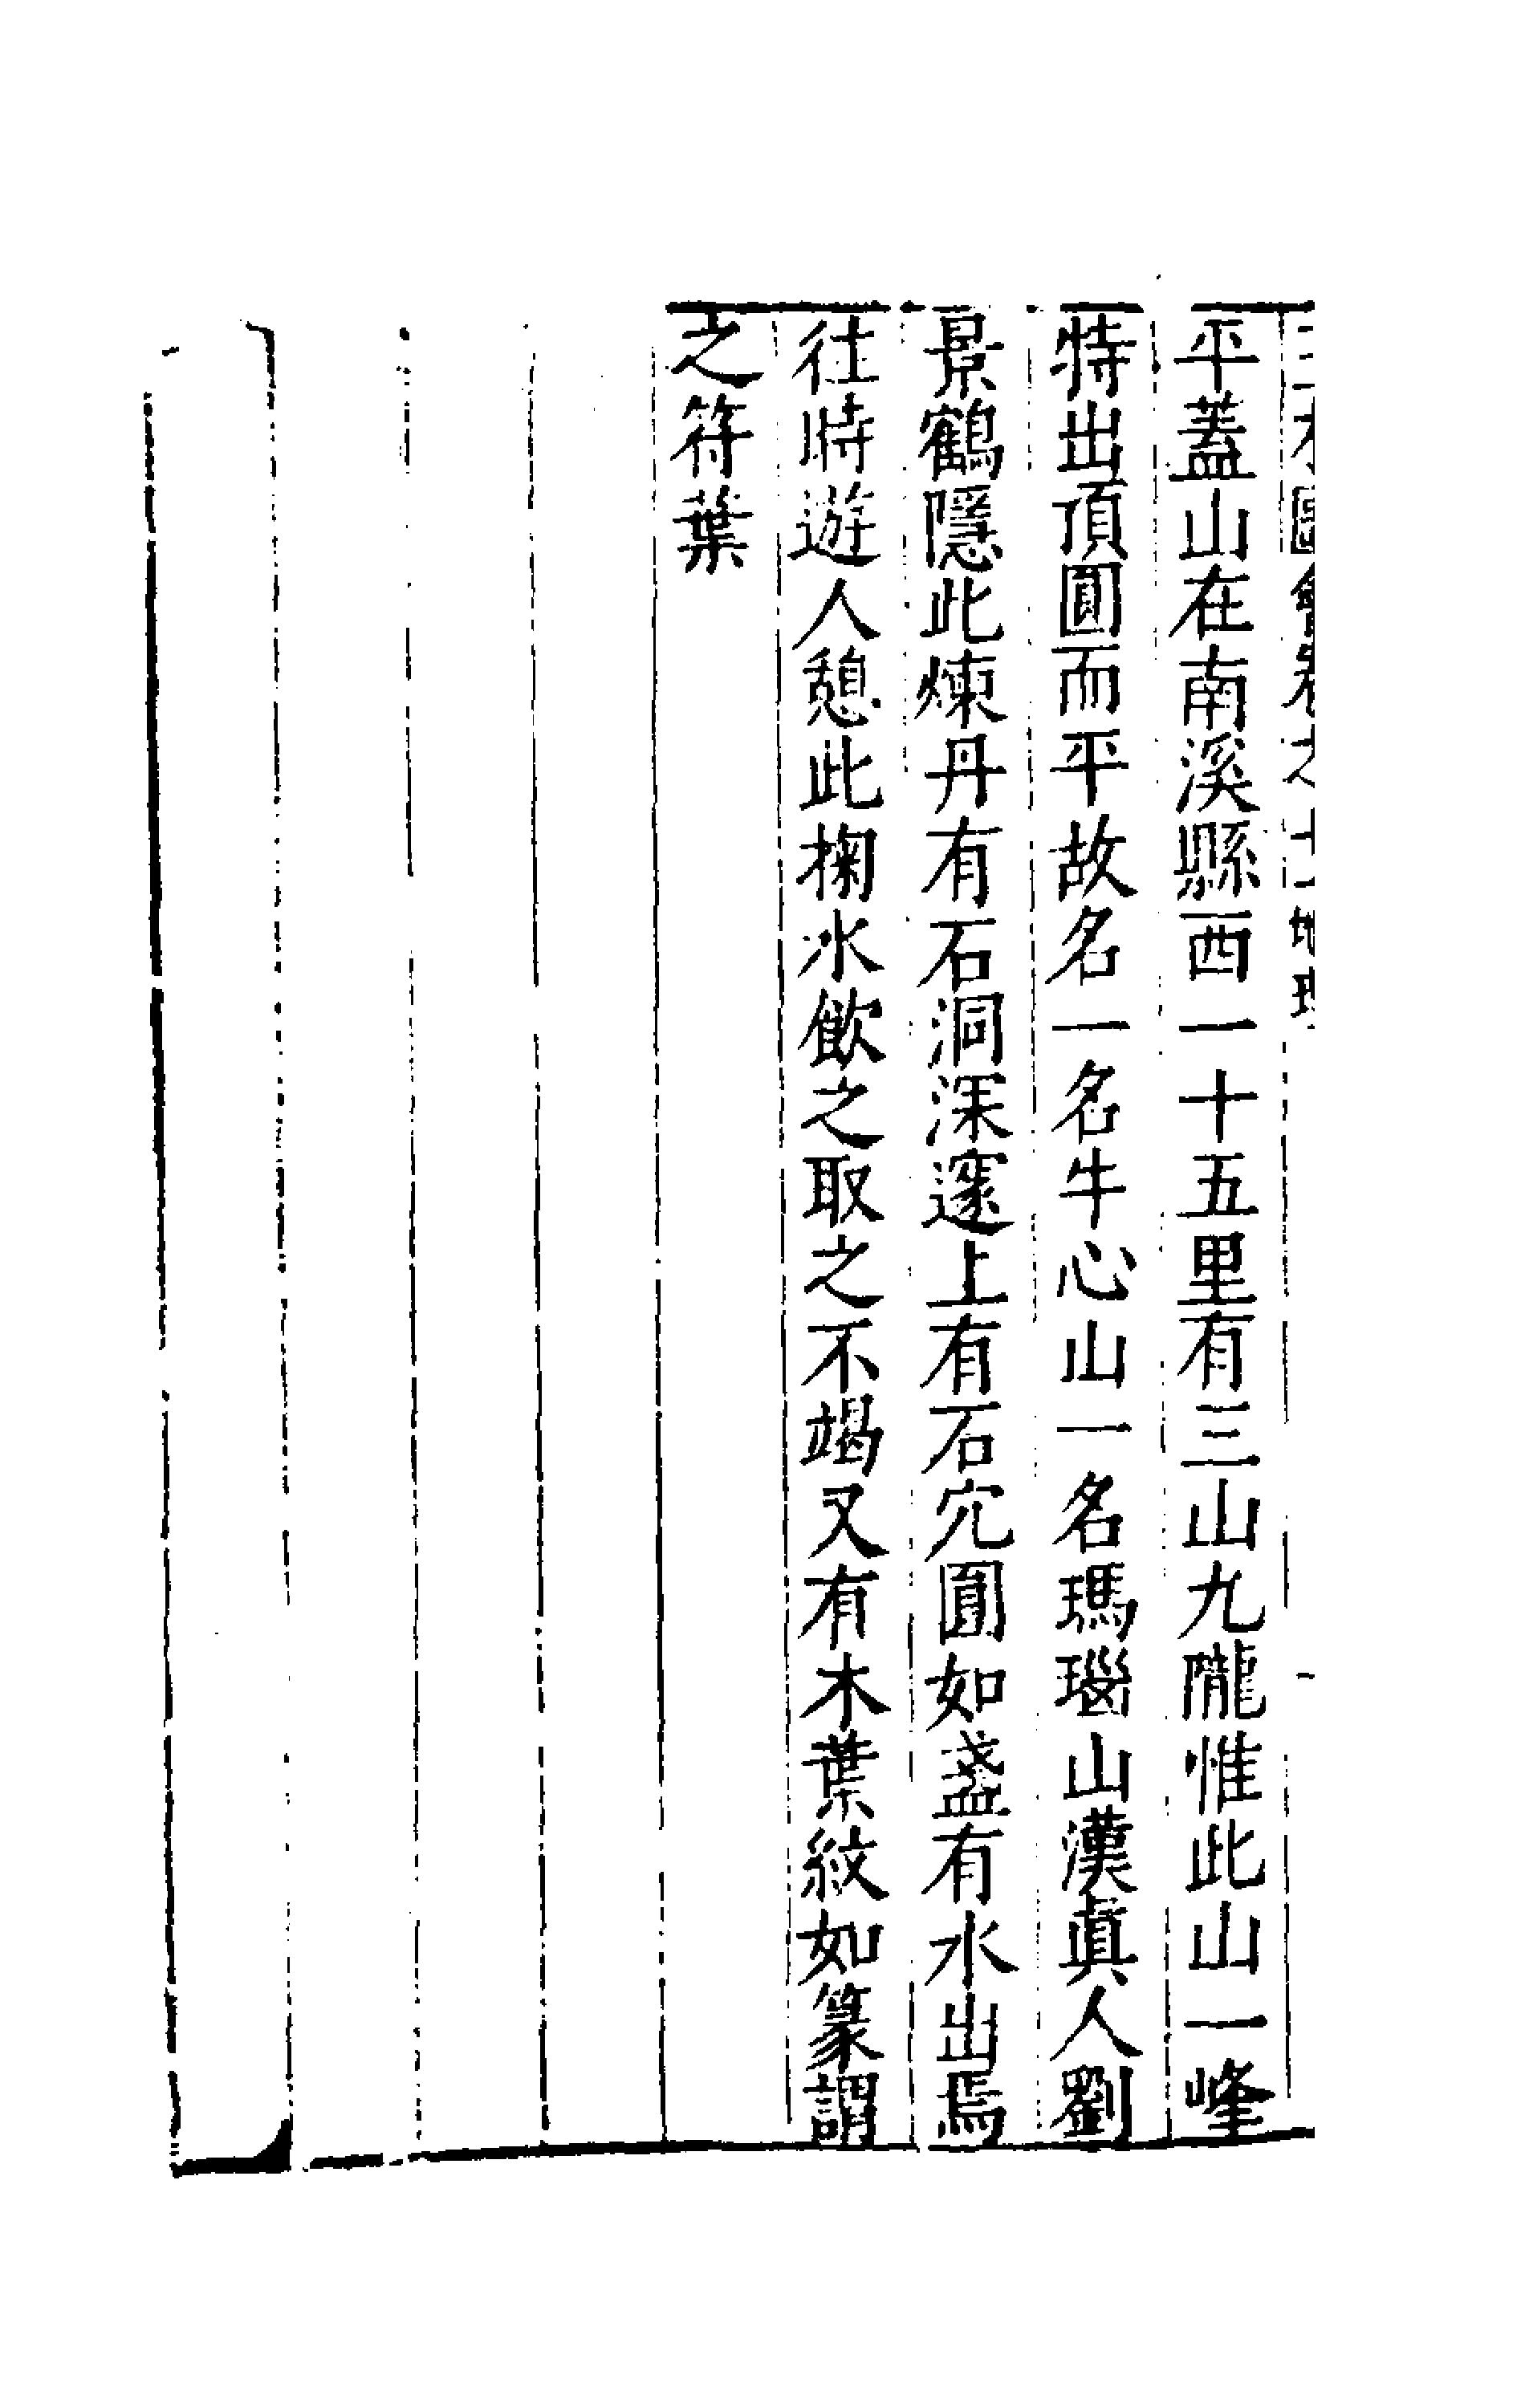 平蓋山在南溪縣西一十五里有三山九隴惟此山一峰
特出頂圓而平故名一名牛心山一名瑪瑙山漢眞人劉
景鶴隱此煉丹有石洞深邃上有石穴圓如盞有水出焉
往時遊人憩此掬水飮之取之不竭又有木葉紋如篆謂
之符葉